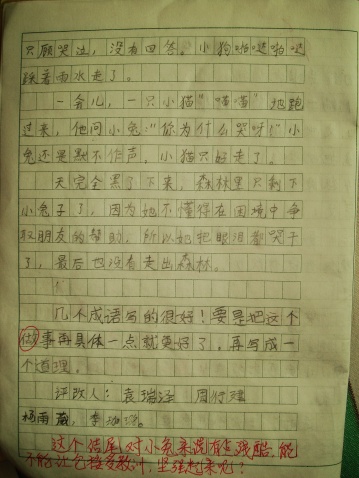 只顾哭泣，没有回答。小狗啪哒啪哒
踩着雨水走了。
一会儿，一只小猫“喵喵”地跑
过来，他问小兔：“你为什么哭呀！”小
兔还是默不作声，小猫只好走了。
天完全黑了下来，森林里只剩下
小兔子了，因为她不懂得在困境中争
取朋友的帮助，所以她把眼泪都哭干
了，最后也没有走出森林。
几个成语写的很好！要是把这个
做事再具体一点就更好了，再写成一
个道理。
评改人：袁瑞泾 周
杨雨葳，李
这个结尾对小兔来说有点残酷，能
不能让它接受教训，坚强起来呢！